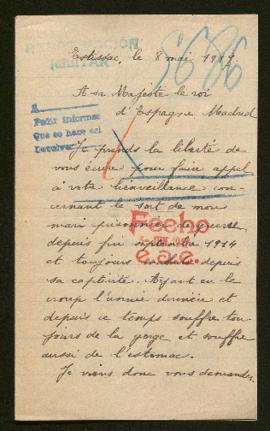 Estissac, le 8 mai 1917
A sa Majesté le roi
d'Espagne Madrid
A
Pedir informes
Que se hace así
Devolver
Je prends la liberté de
vous écrire pour faire appel
à votre bienveillance con-
cernant le sort de mon
mari prisonnier de guerre
depuis fin septembre 1914
et toujours malade depuis
sa captivité. Ayant eu le
croup l'année dernière et
depuis ce temps souffre tou-
jours de la gorge et souffre
aussi de l'estomac.
Je viens donc vous demander
Fecho